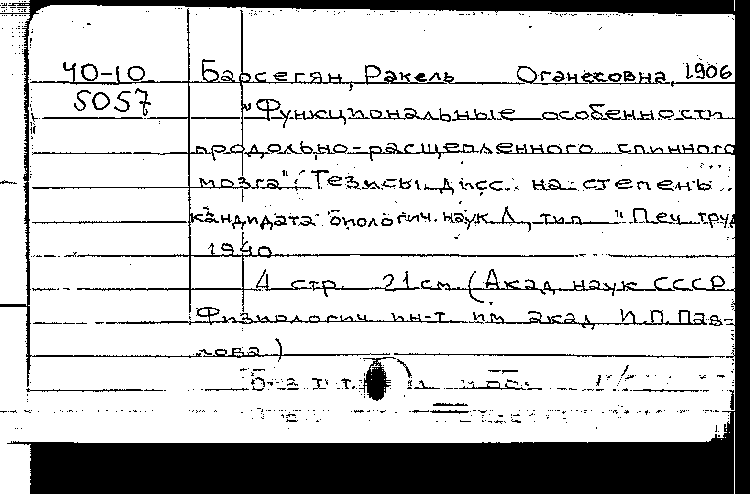 40-10 Барсегян, Ракель Оганесовна, 1906
5057 "Функциональные особенности
продольно-расщепленного спинного
мозга" (Тезисы дисс. на степень
кандидата биологич. наук Л, тип "Печ труд
1940
4 стр. 21 см (Акад наук СССР
Физиологич ин-т им акад И.П. Пав-
лова)
Без тит.